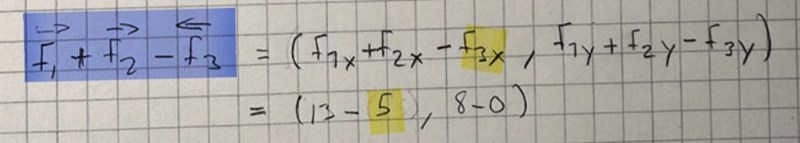 f₁⃗ + f₂⃗ - f₃⃖ = (f₁ₓ+f₂ₓ - f₃ₓ, f₁y + f₂y - f₃y)
= (13 - 5, 8-0)